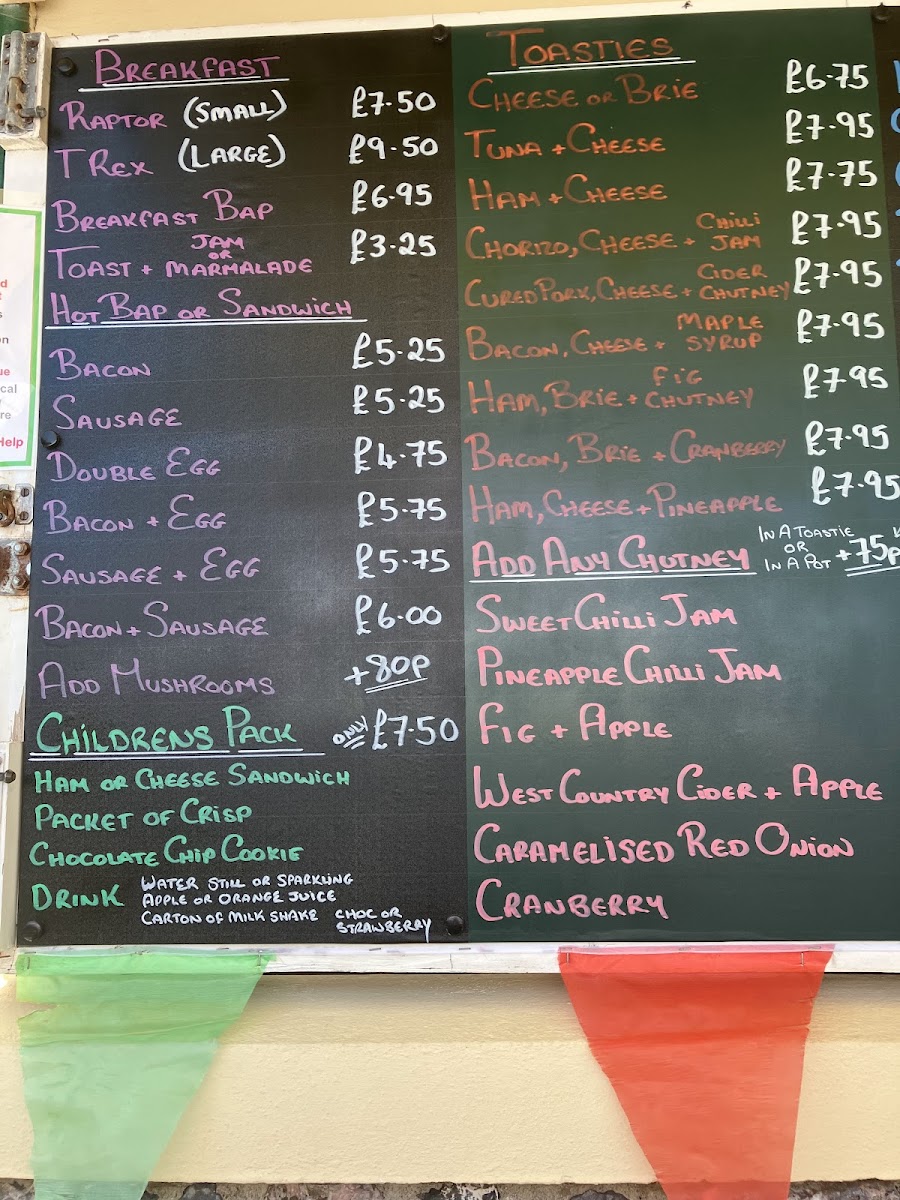 BREAKFAST
RAPTOR (SMALL) £7.50
T REX (LARGE) £9.50
BREAKFAST BAP £6.95
TOAST + JAM OR MARMALADE £3.25
HOT BAP OR SANDWICH
BACON £5.25
SAUSAGE £5.25
DOUBLE EGG £4.75
BACON + EGG £5.75
SAUSAGE + EGG £5.75
BACON + SAUSAGE £6.00
ADD MUSHROOMS +80P
CHILDRENS PACK ONLY £7.50
HAM OR CHEESE SANDWICH
PACKET OF CRISP
CHOCOLATE CHIP COOKIE
DRINK WATER STILL OR SPARKLING
APPLE OR ORANGE JUICE
CARTON OF MILK SHAKE CHOC OR STRAWBERRY
TOASTIES
CHEESE OR BRIE £6.75
TUNA + CHEESE £7.95
HAM + CHEESE £7.75
CHORIZO, CHEESE + CHILLI JAM £7.95
CURED PORK, CHEESE + CIDER CHUTNEY £7.95
BACON, CHEESE + MAPLE SYRUP £7.95
HAM, BRIE + FIG CHUTNEY £7.95
BACON, BRIE + CRANBERRY £7.95
HAM, CHEESE + PINEAPPLE £7.95
ADD ANY CHUTNEY IN A TOASTIE OR IN A POT +75P
SWEET CHILLI JAM
PINEAPPLE CHILLI JAM
FIG + APPLE
WEST COUNTRY CIDER + APPLE
CARAMELISED RED ONION
CRANBERRY
Help